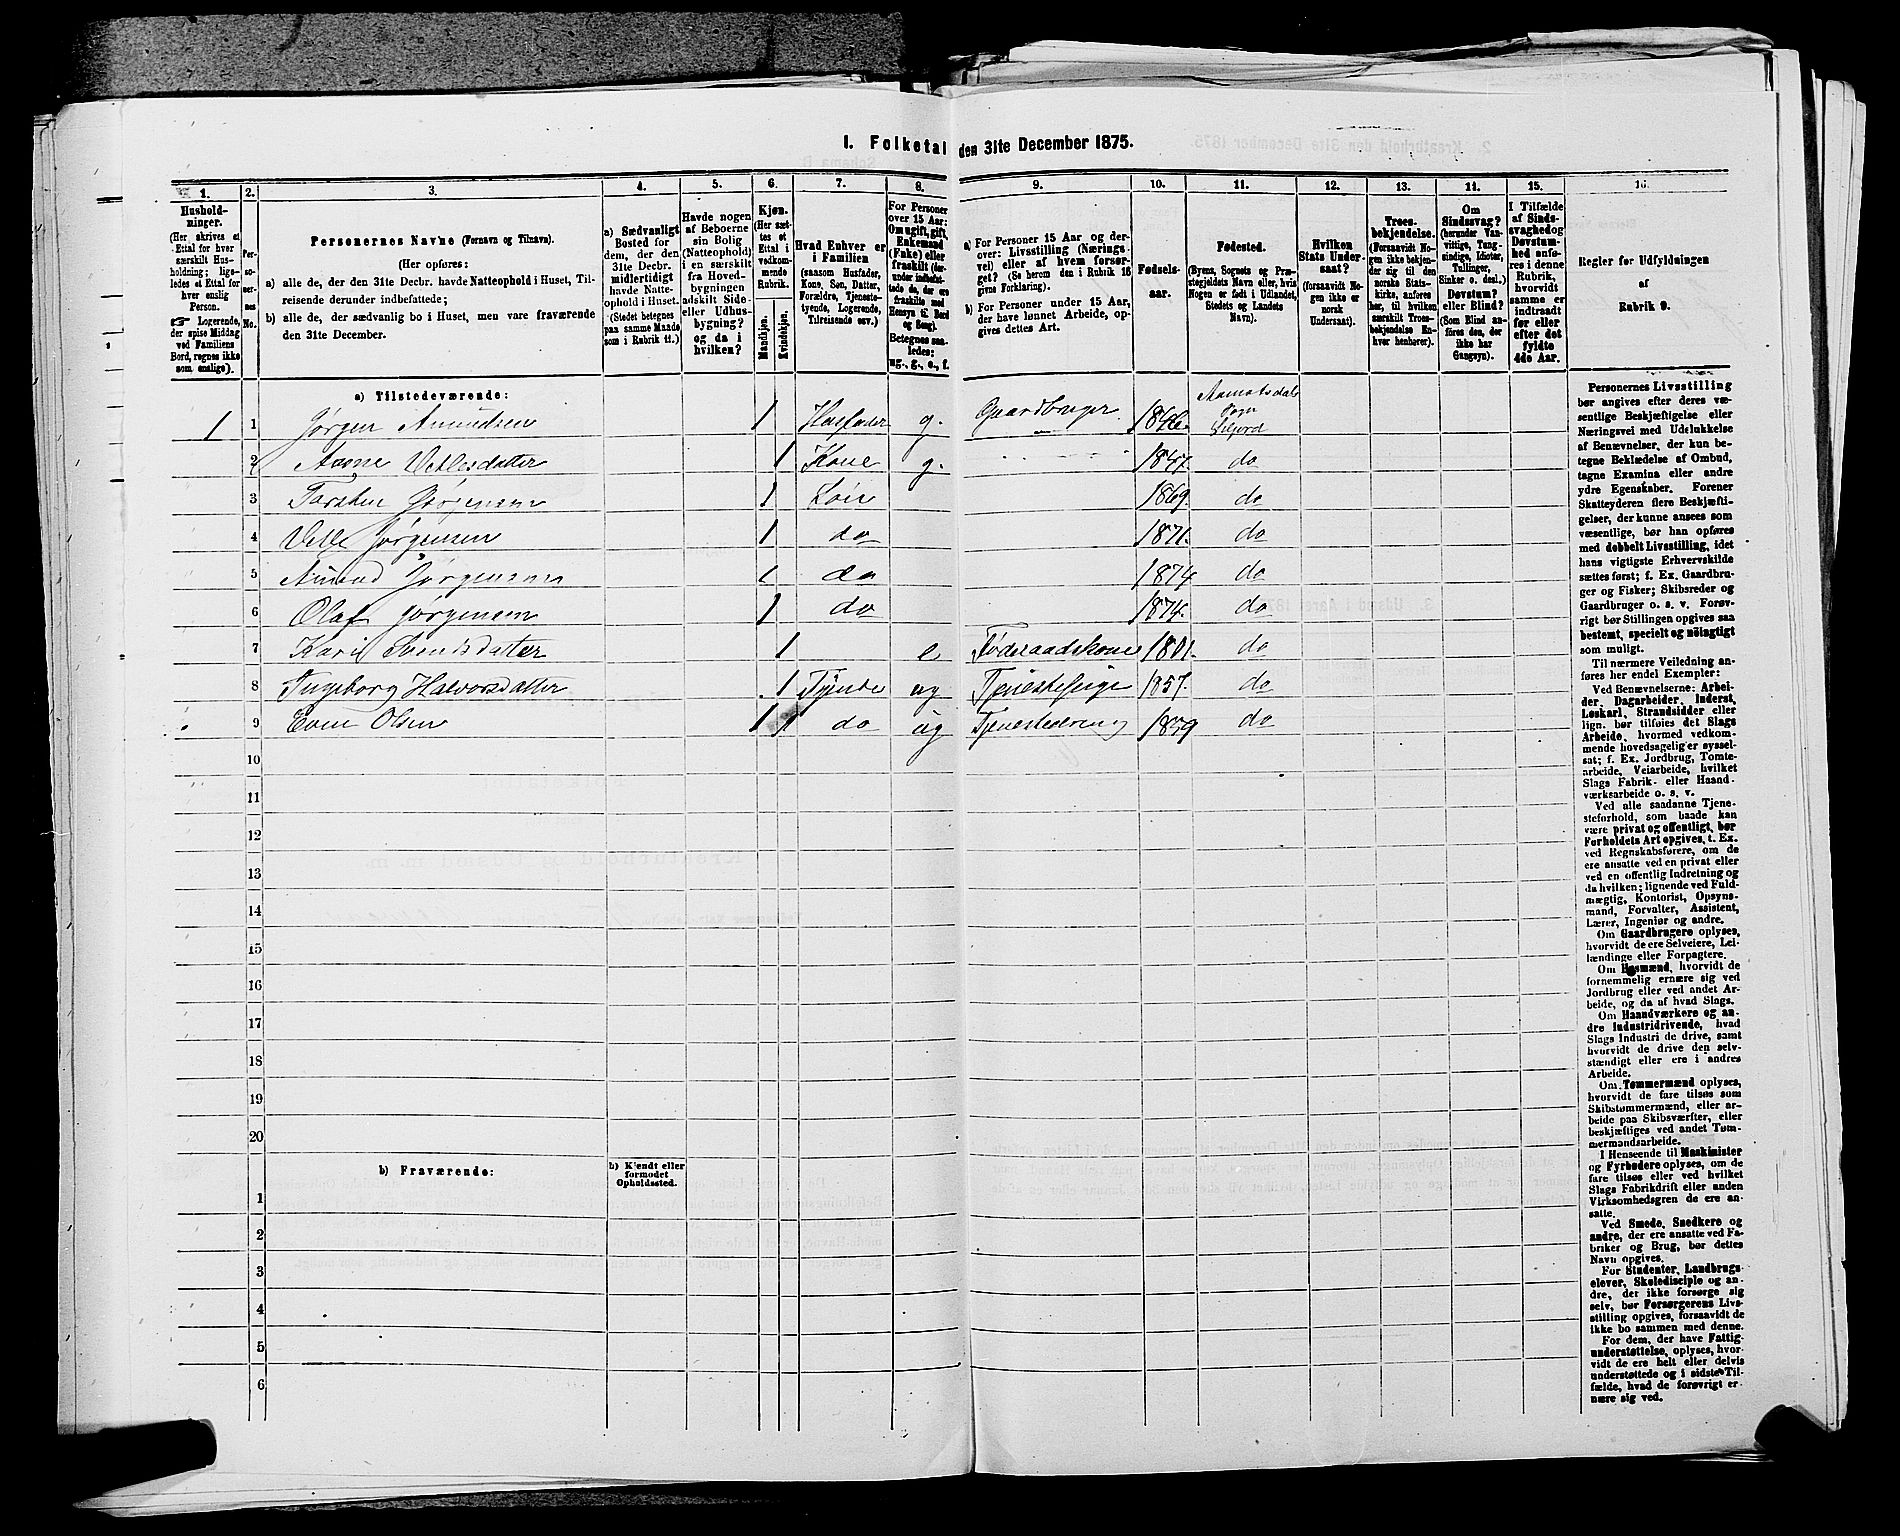 I. Folketal den 31te December 1875.
1. 2. 3. 4. 5. 6. 7. 8. 9. 10. 11. 12. 13. 14. 15. 16.
Hushold-
ninger.
(Her skrives et
Ettal for hver
særskilt Hus-
holdning; lige-
ledes et Ettal for
hver enslig
Person.
☞ Logerende,
der spise Middag
ved Familiens
Bord, regnes ikke
som enslige).
Per-
so-
ner-
nes
No.
Personernes Navne (Fornavn og Tilnavn).
(Her opføres:
a) alle de, der den 31te Decbr. havde Natteophold i Huset, Til-
reisende derunder indbefattede;
b) alle de, der sædvanlig bo i Huset, men vare fraværende
den 31te December.
a) Sædvanligt
Bosted for
dem, der den
31te Decbr.
midlertidigt
havde Natte-
ophold i Huset.
(Stedet betegnes
paa samme Maade
som i Rubrik 11.)
Havde nogen
af Beboerne
sin Bolig
(Natteophold)
i en særskilt
fra Hoved-
bygningen
adskilt Side-
eller Udhus-
bygning?
og da i
hvilken?
Kjøn.
(Her sæt-
tes et
Ettal i
vedkom-
mende
Rubrik.
Mandkjøn.
Kvindekjøn.
Hvad Enhver er
i Familien
(saasom Husfader,
Kone, Søn, Datter,
Forældre, Tjeneste-
tyende, Logerende,
Tilreisende osv.)
For Personer
over 15 Aar:
Om ugift, gift,
Enkemand
(Enke) eller
fraskilt (der-
under indbefat-
tede de, der ere
fraskilte med
Hensyn til Bord
og Seng).
Betegnes saa-
ledes:
ug., g., e., f.
a) For Personer 15 Aar og der-
over: Livsstilling (Nærings-
vei) eller af hvem forsør-
get? (Se herom den i Rubrik 16
givne Forklaring).
b) For Personer under 15 Aar,
der have lønnet Arbeide, op-
gives dettes Art.
Fødsels-
aar.
Fødested.
(Byens, Sognets og Præ-
stegjeldets Navn eller, hvis
Nogen er født i Udlandet,
Stedets og Landets
Navn).
Hvilken
Stats Under-
saat?
(forsaavidt No-
gen ikke er
norsk
Undersaat).
Troes-
bekjendelse.
(Forsaavidt No-
gen ikke bekjen-
der sig til den
norske Stats-
kirke, anføres
her, til hvilken
særskilt Troes-
bekjendelse En-
hver henhører).
Om
Sindssvag?
(herunder Van-
vittige, Tung-
sindige, Idioter,
Tullinger,
Sinker o. desl.).
Døvstum?
eller Blind?
(Som Blind an-
føres den, der
ikke har
Gangsyn).
I Tilfælde
af Sinds-
svaghed og
Døvstum-
hed anfø-
res i denne
Rubrik,
hvorvidt
samme er
indtraadt
før eller
efter det
fyldte
4de Aar.
Regler for Udfyldningen
af
Rubrik 9.
a) Tilstedeværende:
1 1 Jørgen Amundsen 1 Husfader g. Gaardbruger 1846. Aamotsdals Sogn Siljord
2 Aasne Vetlesdatter 1 Kone g. 1847. do
3 Torsten Jørgensen 1 Søn 1869. do
4 Vetle Jørgensen 1 do 1871. do
5 Amund Jørgensen 1 do 1874 do
6 Olaf Jørgensen 1 do 1874. do
7 Kari Svendsdatter 1 e Føderaadskone 1801. do
8 Ingeborg Halvorsdatter 1 Tyende ug Tjenestepige 1857. do
9 Even Olsen 1 1 do ug Tjenestedreng 1859 do
10
11
12
13
14
15
16
17
18
19
20
b) Fraværende:
b) Kjendt eller
formodet
Opholdssted.
1
2
3
4
5
6
Personernes Livsstilling
bør angives efter deres væ-
sentlige Beskjæftigelse eller
Næringsvei med Udelukkelse
af Benævnelser, der kun be-
tegne Beklædelse af Ombud,
tagne Examina eller andre
ydre Egenskaber. Forener
Skatteyderen flere Beskjæfti-
gelser, der kunne ansees som
væsentlige, bør han opføres
med dobbelt Livsstilling, idet
hans vigtigste Erhvervskilde
sættes først; f. Ex. Gaardbru-
ger og Fisker; Skibsreder og
Gaardbruger o. s. v. Forøv-
rigt bør Stillingen opgives saa
bestemt, specielt og nöiagtigt
som muligt.
Til nærmere Veiledning an-
føres her endel Exempler:
Ved Benævnelserne: Arbei-
der, Dagarbeider, Inderst,
Løskarl, Strandsidder eller
lign. bør tilføies det Slags
Arbeide, hvormed vedkom-
mende hovedsagelig er syssel-
sat; f. Ex. Jordbrug, Tomte-
arbeide, Veiarbeide, hvilket
Slags Fabrik- eller Haand-
værksarbeide o. s. v.
Ved alle saadanne Tjene-
steforhold, som baade kan
være privat og offentligt, bør
Forholdets Art opgives, t. Ex.
ved Regnskabsførere, om de
ere ansatte ved en privat eller
ved en offentlig Indretning og
da hvilken; lignende ved Fuld-
mægtig, Kontorist, Opsyns-
mand, Forvalter, Assistent,
Lærer, Ingeniør og andre.
Om Gaardbrugere oplyses,
hvorvidt de ere Selveiere, Lei-
lændinge eller Forpagtere.
Om Husmænd, hvorvidt de
fornemmelig ernære sig ved
Jordbrug eller ved andet Ar-
beide, og da af hvad Slags.
Om Haandværkere og an-
dre Industridrivende, hvad
Slags Industri de drive, samt
hvorvidt de drive den selv-
stændigt eller ere i andres
Arbeide.
Om Tømmermænd oplyses,
hvorvidt de fare tilsøs som
Skibstømmermænd, eller ar-
beide paa Skibsværfter, eller
beskjæftiges ved andet Tøm-
mermandsarbeide.
I Henseende til Maskinister
og Fyrbødere oplyses, om de
fare tilsøs eller ved hvilket
Slags Fabrikdrift eller anden
Virksomhedsgren de ere an-
satte.
Ved Smede, Snedkere og
andre, der ere ansatte ved Fa-
briker og Brug, bør dettes
Navn opgives.
For Studenter, Landbrugs-
elever, Skoledisciple og an-
dre, der ikke forsørge sig
selv, bør Forsørgerens Livs-
stilling opgives, forsaavidt de
ikke bo sammen med denne.
For dem, der have Fattig-
understøttelse, oplyses, hvor-
vidt de ere helt eller delvis
understøttede og i sidste Til-
fælde, hvad de forøvrigt er-
nære sig ved.